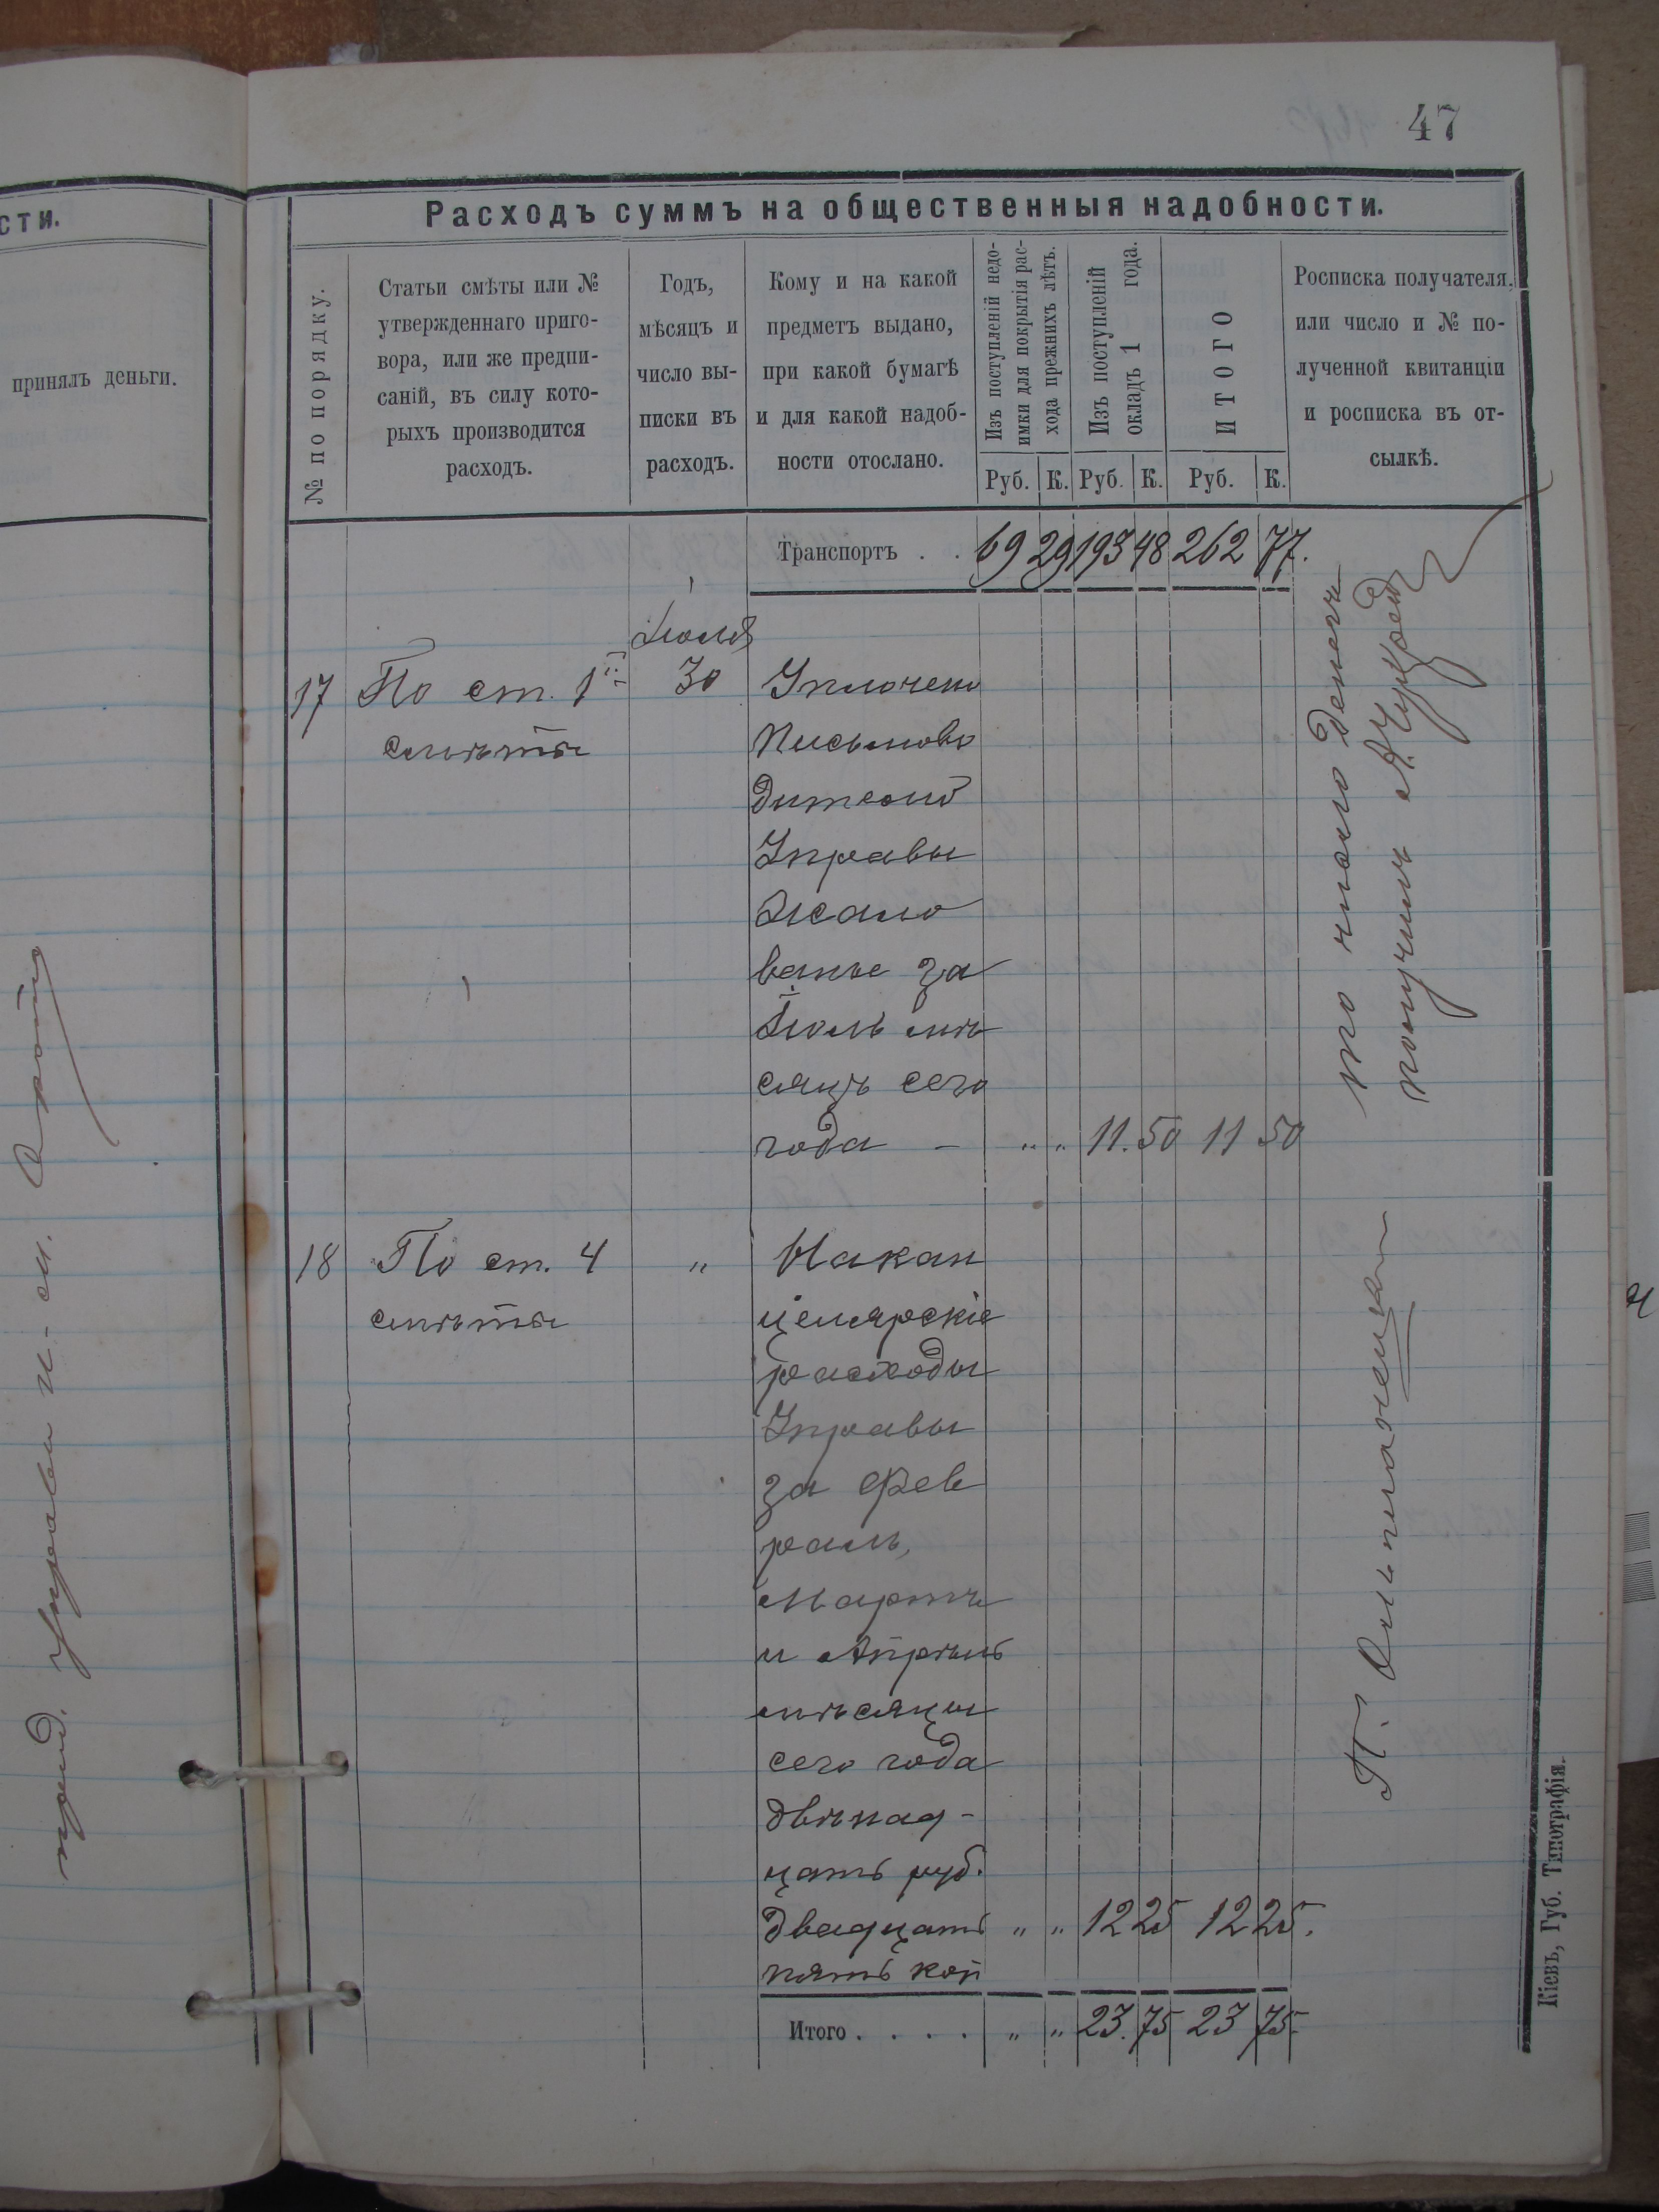 47
сти.
принялъ деньги.
Расходъ суммъ на общественныя надобности.
№ по порядку.
Статьи смѣты или №
утвержденнаго приго-
вора, или же предпи-
саній, въ силу кото-
рыхъ производится
расходъ.
Годъ,
мѣсяцъ и
число вы-
писки въ
расходъ.
Кому и на какой
предметъ выдано,
при какой бумагѣ
и для какой надоб-
ности отослано.
Изъ поступленій недо-
имки для покрытія рас-
хода прежнихъ лѣтъ.
Изъ поступленій
окладъ 1 года.
ИТОГО
Росписка получателя,
или число и № по-
лученной квитанціи
и росписка въ от-
сылкѣ.
Руб. К. Руб. К. Руб. К.
Транспортъ . . 69 29 193 48 262 77.
Іюля
17 По ст. 1й 30 Уплочено
смѣты Письмово
дителю
Управы
Жало
ванье за
Іюль мѣ
сяцъ сего
года - " " 11.50 11 50
получилъ
18 По ст. 4 " На кан
смѣты целярскіе
расходы
Управы
за Фев
раль,
Мартъ
и Апрѣль
мѣсяцы
сего года
двѣнад-
цать руб.
двадцать " " 12 25 12 25.
пять коп
Итого . . . . " " 23.75 23 75.
Кіевъ, Губ. Типографія.